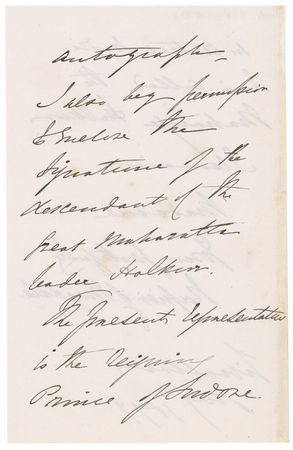 autograph_
I also beg permission
to Enclose the
Signature of the
descendant of the
great Maharatta
leader Holkur.
The present representative
is the reigning
Prince of Indore.